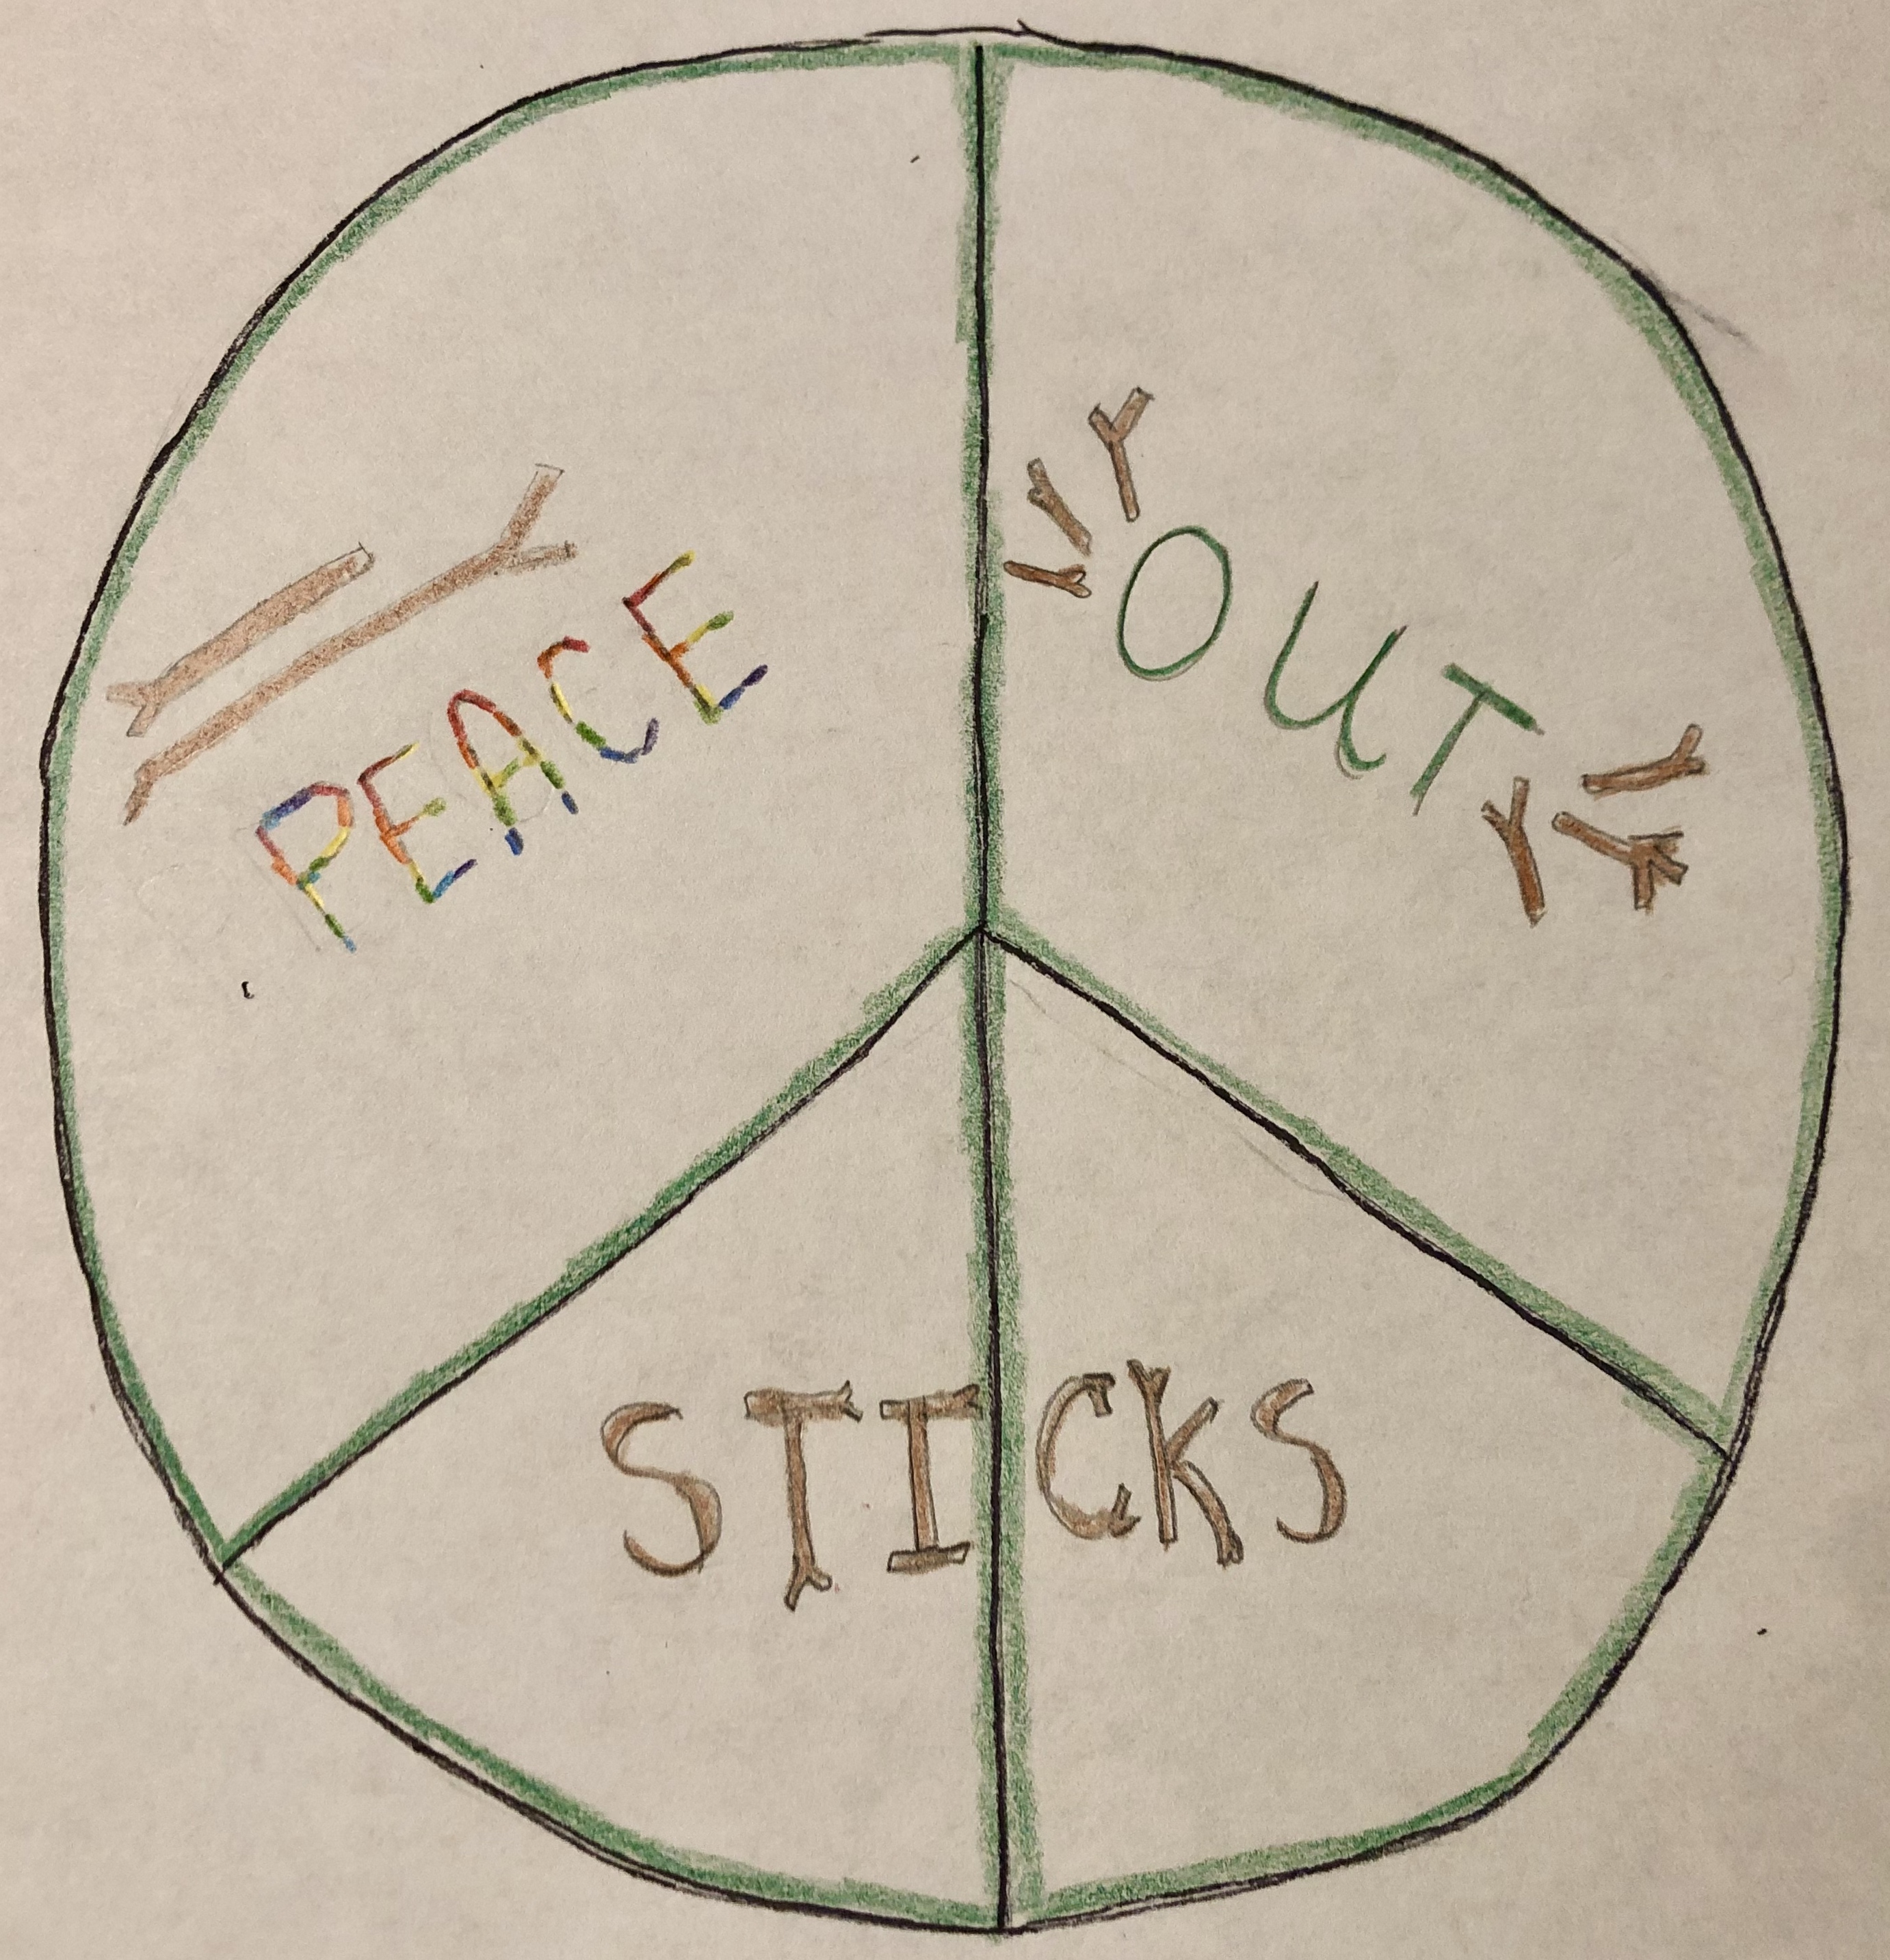 PEACE
OUT
STICKS